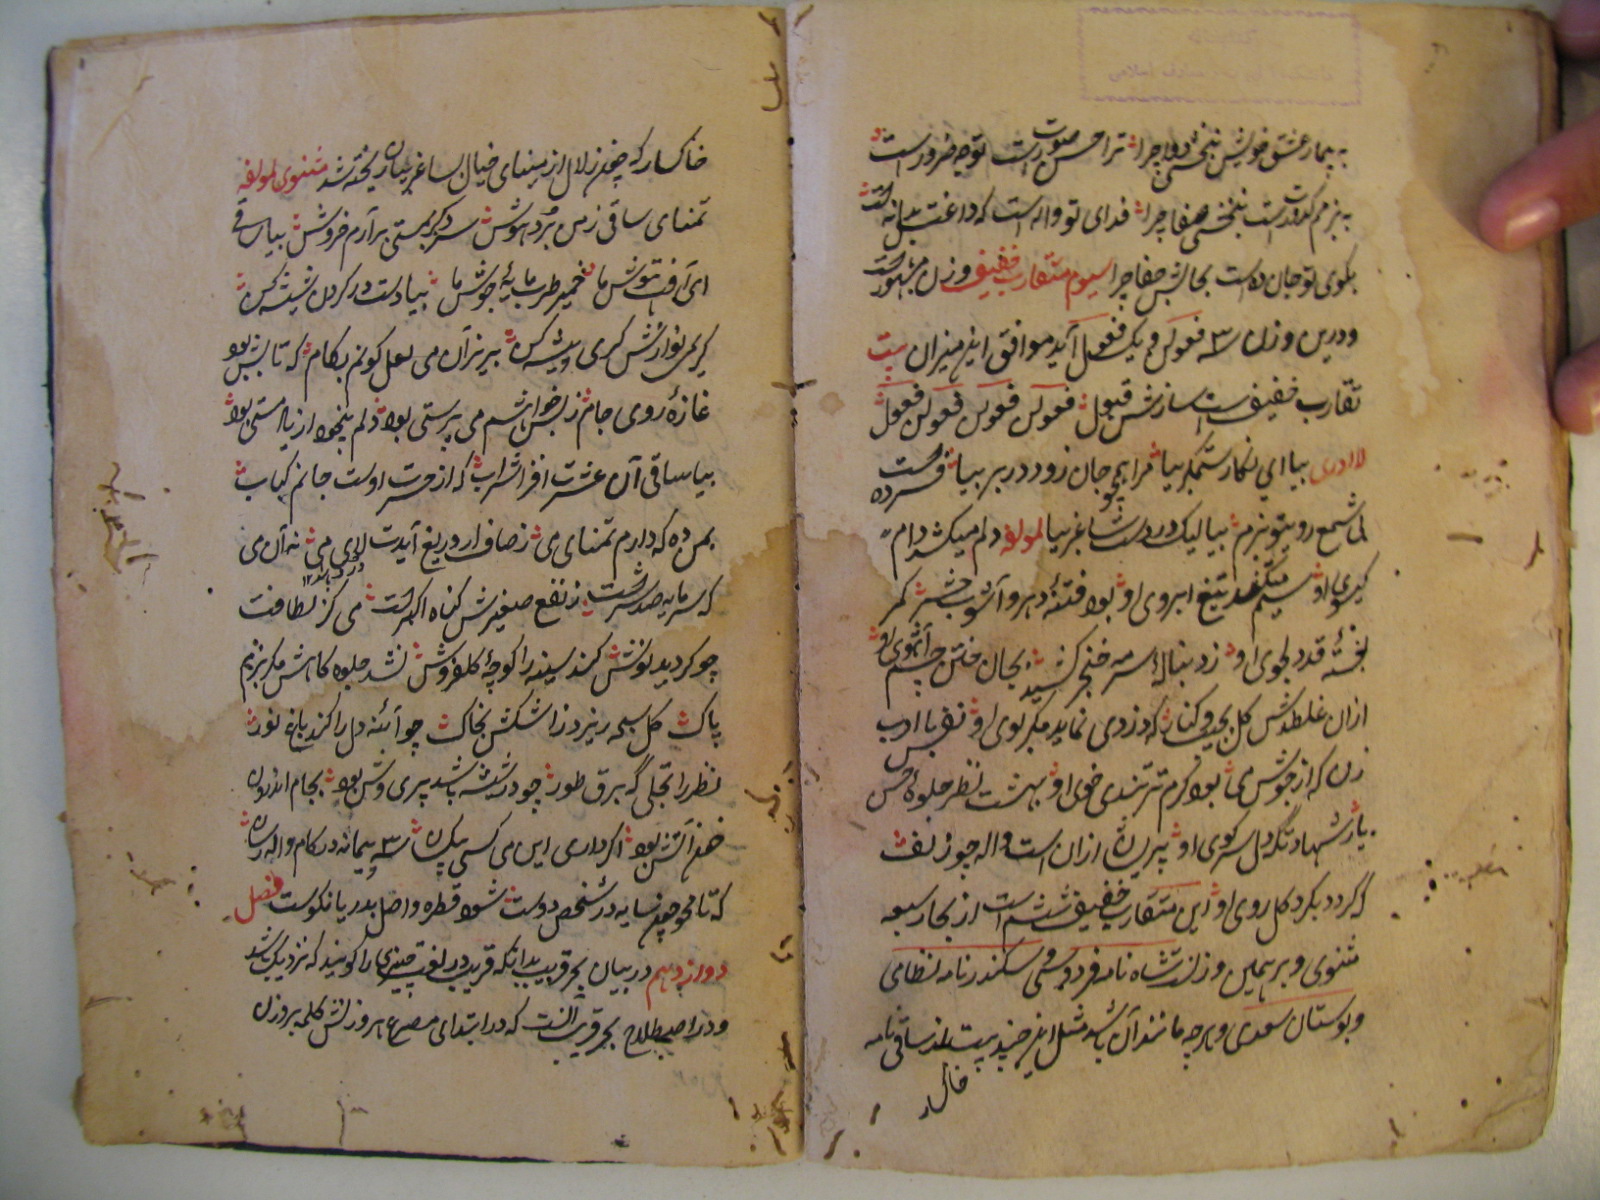 به بیمار عشق خویش نبخشی دوا چرا ترا حسن صورت است توجه ضرور است
به بزمم کدورت است نبخشی صفا چرا فدای تو واله است که داغت
بکوی تو جان داست بجانش جفا چرا سیوم متقارب خفیف وزن مشهور است
و درین وزن سه فعولن و یک فعول آید موافق این میزان بیت
تقارب خفیف است سازش قبول فعولن فعولن فعولن فعول
لاادری بیا ای نگار ستمگر بیا مرا همچو جان زود در بر بیا فسرده است
بی شمع رویتو بزم بیا لیک در دست ساغر بیا لمولفه دلم میکشد دام
گیسوی او ستم میکند تیغ ابروی او بود فتنهٔ دهر و آشوب حشر کمر
بستهٔ قد دلجوی او ز دنبالهٔ سرمه خنجر کشید بجان ختن چشم آهوی او
ازان غلطدش گل بجیب و کنار که دزدی نماید مگر بوی او نفس با ادب
زن که از جوش می بود گرم تر تندی خوی او بهشت نظر جلوهٔ حسن
یار شهادتگه دل سر کوی او پریشان ازان است واله چو زلف
که گردد بگرد گل روی او این متقارب خفیف ششم است از بحار سبعه
مثنوی و بر همین وزن است شاه نامه فردوسی و سکندر نامه نظامی
و بوستان سعدی و هر چه مانند آن باشد مثل این چند بیت اند ساقی نامه
خاکسار
خاکسار که چون زلال از مینای خیال بساغر بیان ریخته شد مثنوی لمولفه
تمنای ساقی ز من برد هوش سر کر بمستی برآرم خروش بیا ساقی
ای آفت هوش ما خمیر طرب مایهٔ جوش ما بیا دست در گردن شیشه کن
کرمی نوازش کری پیشه کن بریز آن می لعل گونم بکام که تابش بود
غازهٔ روی جام ز بس خواهشم می پرستی بود دلم بیخود از یاد مستی بود
بیا ساقی آن عشرت افزا شراب که از حسرت اوست جانم کباب
بمن ده که دارم تمنای می ز صاف ار دریغ آیدت لای می نه آن می
که سرمایه صد شر است ز نفع صغیرش گناه اکبر است می کز لطافت
چو گردید نوشش کند سینه را کوچهٔ گلفروش نشد جلوه گاهش مگر بزم
پاک گل سبحه ریزد ز اشکش بخاک چو آئنه دل را کند باغ نور
نظر را تجلی گه برق طور چو در شیشه باشد پری وش بود بجام اندرون
آتش بود اگر داری این می کسی یک پیمانه در کام واله رسان
که تا محو چون سایه در شخص دوست شود قطره واصل بدریا نکوست فصل
دوازدهم در بیان بحر قریب بدانکه قریب در لغت چیزی را گویند که نزدیک باشد
و در اصطلاح بحر قریب آنست که در ابتدای مصرع بر وزنش کلمه بروزن